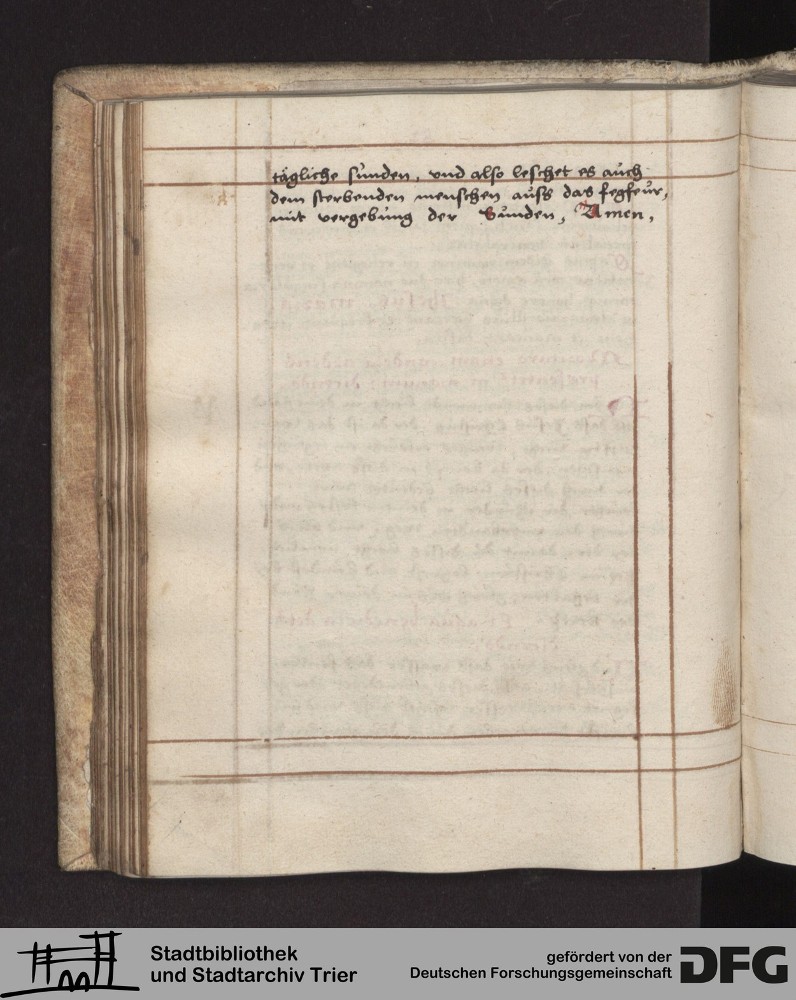 tägliche sünden, vnd also leschet es auch
dem sterbenden menschen auß das fegfeür,
mit vergebung der Sünden, Amen,
Stadtbibliothek
und Stadtarchiv Trier
gefördert von der
Deutschen Forschungsgemeinschaft
DFG